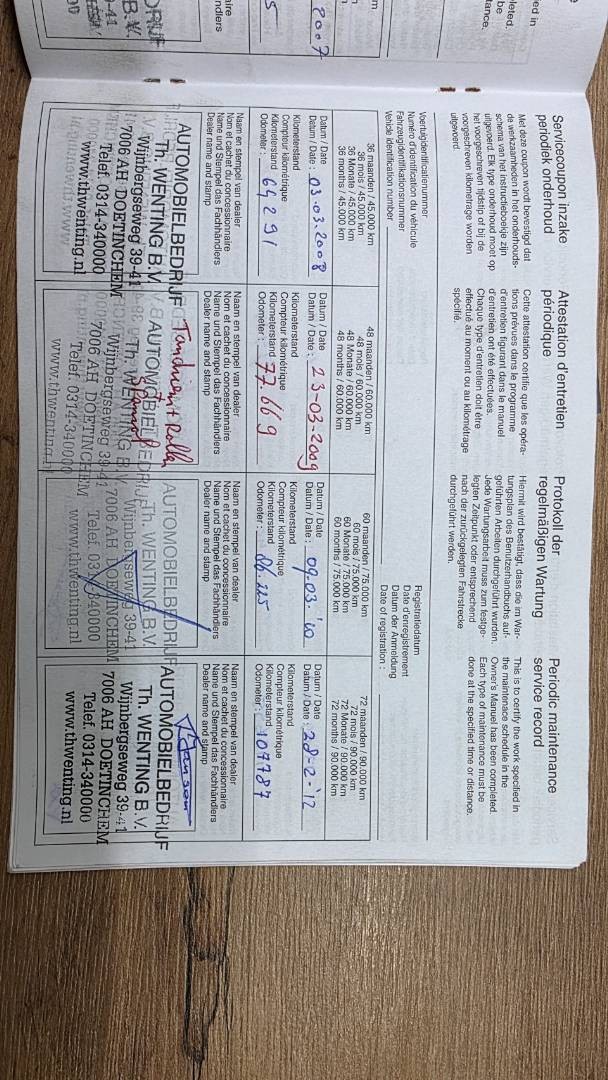 ed in
leted.
be
tance.
2007
5
ndlers
Servicecoupon inzake
periodiek onderhoud
Met deze coupon wordt bevestigd dat
de werkzaamheden in het onderhouds-
schema van het instructieboekje zijn
uitgevoerd. Elk type onderhoud moet op
het voorgeschreven tijdstip of bij de
voorgeschreven kilometrage worden
uitgevoerd
Attestation d'entretien
périodique
Cette attestation certifie que les opéra-
tions prévues dans le programme
d'entretien figurant dans le manuel
d'entretien ont été effectuées.
Chaque type d'entretien doit être
effectué au moment ou au kilométrage
spécifié.
Protokoll der
regelmäßigen Wartung
Hiermit wird bestätigt, dass die im War-
tungsplan des Benutzerhandbuchs auf-
geführten Arbeiten durchgeführt wurden.
Jede Wartungsarbeit muss zum festge-
legten Zeitpunkt oder entsprechend
nach der zurückgelegten Fahrstrecke
durchgeführt werden.
Periodic maintenance
service record
This is to certify the work specified in
the maintenace schedule in the
Owner's Manual has been completed.
Each type of maintenance must be
done at the specified time or distance.
Voertuigidentificatienummer
Numéro d'identification du véhicule
Fahrzeugidentifikationsnummer
Vehicle identification number
Registratiedatum
Date d'enregistrement
Datum der Anmeldung
Date of registration :
36 maanden / 45.000 km
36 mois / 45.000 km
36 Monate / 45.000 km
36 months / 45.000 km
Datum / Date
Datum / Date : 03.03.2008
Kilometerstand
Compteur kilométrique
Kilometerstand
Odometer : 64291
Naam en stempel van dealer
Nom et cachet du concessionnaire
Name und Stempel das Fachhändlers
Dealer name and stamp
AUTOMOBIELBEDRIJF
Th. WENTING B.V.
Wijnbergseweg 39-41
7006 AH DOETINCHEM
Telef. 0314-340000
www.thwenting.nl
48 maanden / 60.000 km
48 mois / 60.000 km
48 Monate / 60.000 km
48 months / 60.000 km
Datum / Date
Datum / Date : 23-03-2009
Kilometerstand
Compteur kilométrique
Kilometerstand
Odometer : 77.669
Naam en stempel van dealer
Nom et cachet du concessionnaire
Name und Stempel das Fachhändlers
Dealer name and stamp
AUTOMOBIELBEDRIJF
Th. WENTING B.V.
Wijnbergseweg 39-41
7006 AH DOETINCHEM
Telef. 0314-340000
www.thwenting.nl
60 maanden / 75.000 km
60 mois / 75.000 km
60 Monate / 75.000 km
60 months / 75.000 km
Datum / Date
Datum / Date : 09.03.'10
Kilometerstand
Compteur kilométrique
Kilometerstand
Odometer :
Naam en stempel van dealer
Nom et cachet du concessionnaire
Name und Stempel das Fachhändlers
Dealer name and stamp
AUTOMOBIELBEDRIJF
Th. WENTING B.V.
Wijnbergseweg 39-4
7006 AH DOETINCHEM
Telef. 0314-340000
www.thwenting.nl
72 maanden / 90.000 km
72 mois / 90.000 km
72 Monate / 90.000 km
72 months / 90.000 km
Datum / Date
Datum / Date : 28-2-'12
Kilometerstand
Compteur kilométrique
Kilometerstand
Odometer : 109787
Naam en stempel van dealer
Nom et cachet du concessionnaire
Name und Stempel das Fachhändlers
Dealer name and stamp
AUTOMOBIELBEDRIJF
Th. WENTING B.V.
Wijnbergseweg 39-41
7006 AH DOETINCHEM
Telef. 0314-340000
www.thwenting.nl